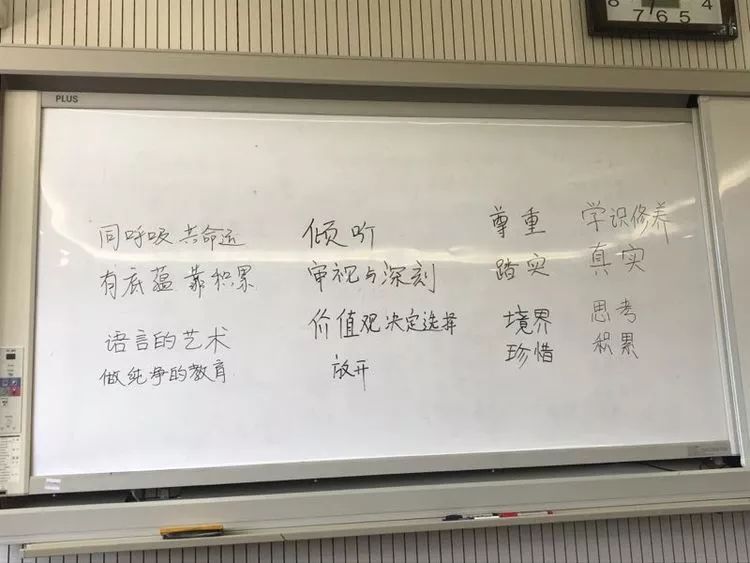 8 7 6 5 4
PLUS
同呼吸 共命运
有底蕴 靠积累
语言的艺术
做纯净的教育
倾听
审视与深刻
价值观决定选择
放开
尊重
踏实
境界
珍惜
学识修养
真实
思考
积累